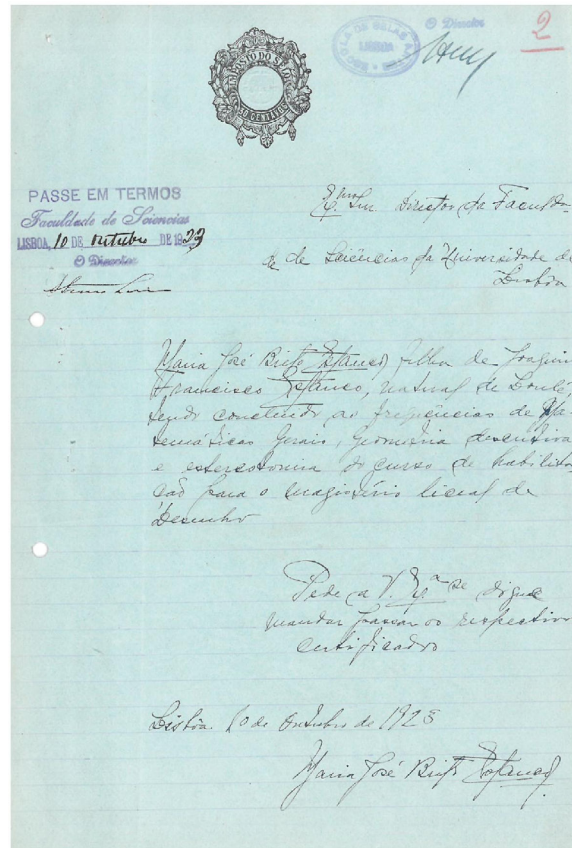 2
O Director
ESCOLA DE BELAS ARTES
LISBOA
IMPOSTO DO SELO
CENTAVOS
PASSE EM TERMOS
Faculdade de Sciencias
LISBOA, 10 DE outubro DE 1923
O Director
Exmo Snr Director da Faculda-
de de Sciências da Universidade de
Lisboa
Maria José Brito Estanco, filha de Joaquim
Francisco Estanco, natural de Loulé,
tendo concluido as frequências de Ma-
temáticas Gerais, Geometria descritiva
e estereotomia do curso de habilita-
ção para o magistério liceal de
desenho
Pede a V. Exª se digne
mandar passar o respectivo
certificado
Lisboa 10 de Outubro de 1923
Maria José Brito Estanco